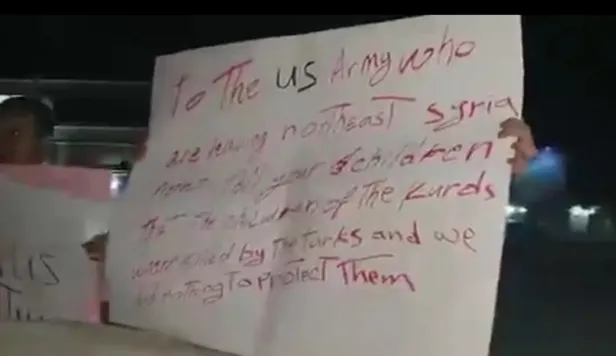 To The US Army who
are leaving northeast Syria
tell your children
that the children of The Kurds
were killed by The Turks and we
did nothing to protect Them